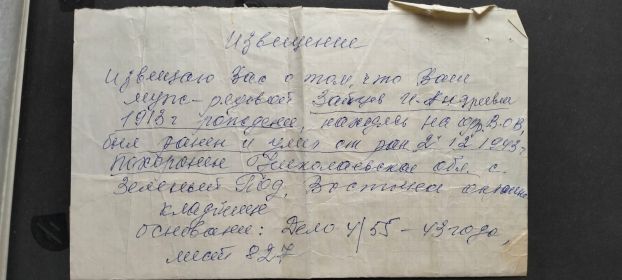 Извещение
Извещаю Вас о том, что Ваш
муж – рядовой Зайцев И. Андреевич
1913 г рождения, находясь на фр. В.О.В,
был ранен и умер от ран 2. 12 1943 г.
похоронен Николаевская обл. с.
Зеленый Под, Восточная окраина
кладбище
основание: Дело 4/55 – 43 года,
лист 827